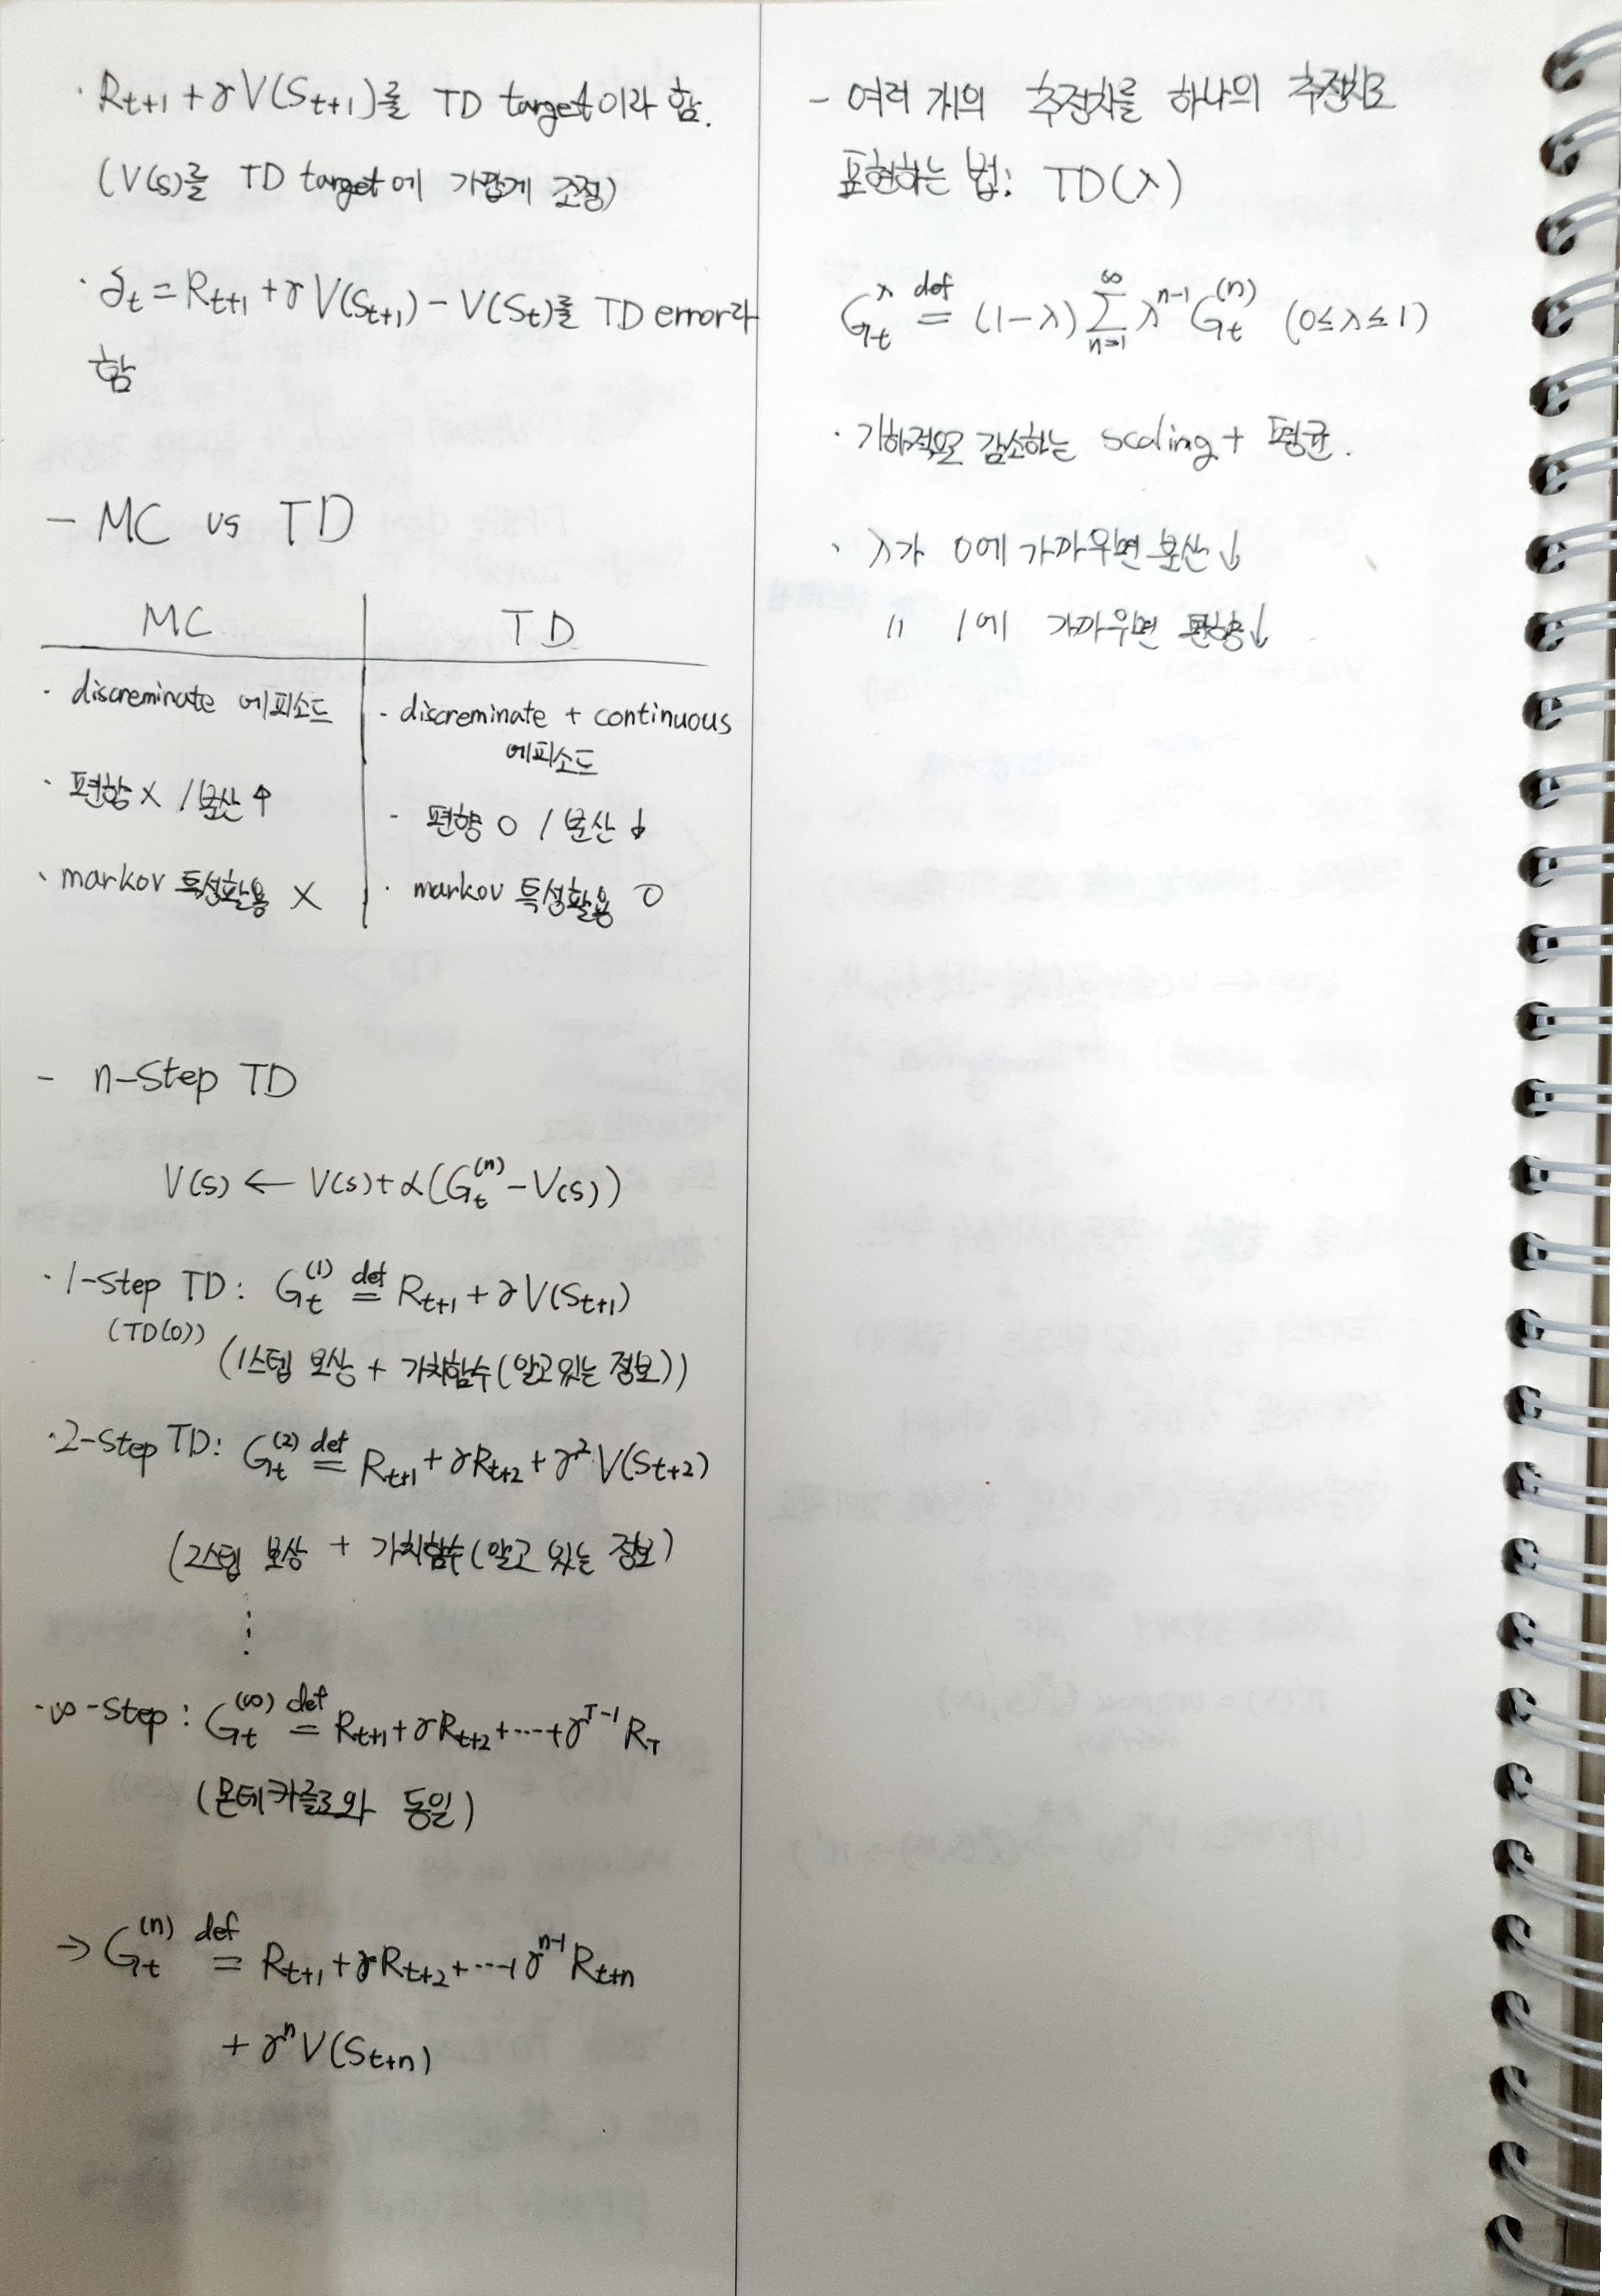 · R_{t+1} + γV(S_{t+1})를 TD target이라 함.
(V(s)를 TD target에 가깝게 조정)
· δ_t = R_{t+1} + γV(S_{t+1}) - V(S_t)를 TD error라
함
- MC vs TD
MC | TD
· discreminate 에피소드 | · discreminate + continuous
에피소드
· 편향 X / 분산 ↑ | · 편향 O / 분산 ↓
· markov 특성활용 X | · markov 특성활용 O
- n-step TD
V(s) ← V(s) + α(G_t^{(n)} - V(s))
· 1-step TD: G_t^{(1)} def= R_{t+1} + γV(S_{t+1})
(TD(0))
(1스텝 보상 + 가치함수(알고있는 정보))
· 2-step TD: G_t^{(2)} def= R_{t+1} + γR_{t+2} + γ^2 V(S_{t+2})
(2스텝 보상 + 가치함수(알고 있는 정보)
⋮
· ∞-step: G_t^{(∞)} def= R_{t+1} + γR_{t+2} + ··· + γ^{T-1} R_T
(몬테카를로와 동일)
→ G_t^{(n)} def= R_{t+1} + γR_{t+2} + ··· + γ^{n-1} R_{t+n}
+ γ^n V(S_{t+n})
- 여러 개의 추정치를 하나의 추정치로
표현하는 법: TD(λ)
G_t^λ def= (1-λ) Σ_{n=1}^{∞} λ^{n-1} G_t^{(n)} (0≤λ≤1)
· 기하적으로 감소하는 scaling + 평균.
· λ가 0에 가까우면 분산↓
〃 1에 가까우면 편향↓